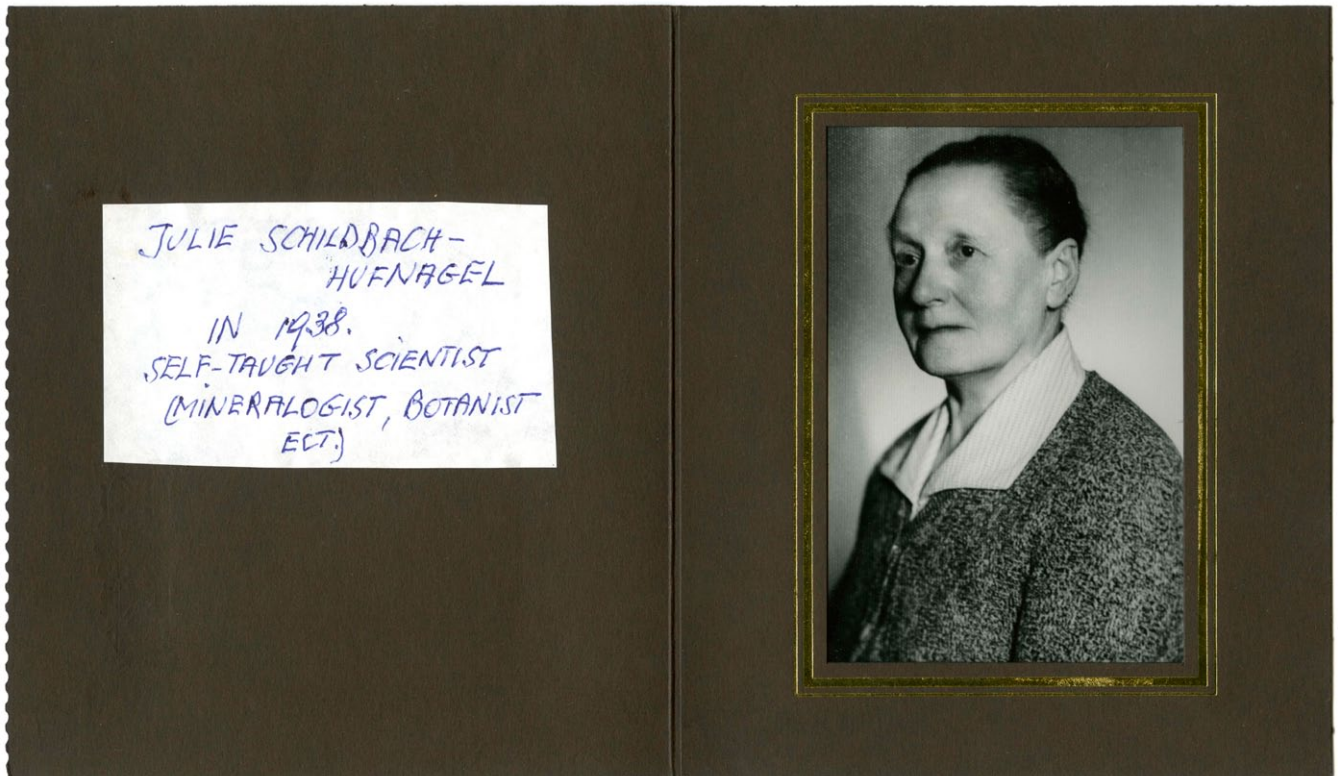 JULIE SCHILDBACH-
HUFNAGEL
IN 1938.
SELF-TAUGHT SCIENTIST
(MINERALOGIST, BOTANIST
ECT.)